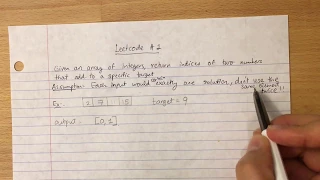 Leetcode #2
Given an array of integers, return indices of two numbers
that add to a specific target.
Assumption: Each input would exactly one solution, don't use the
same
twice!!
Ex: [2 7 15] target = 9
output = [0, 1]